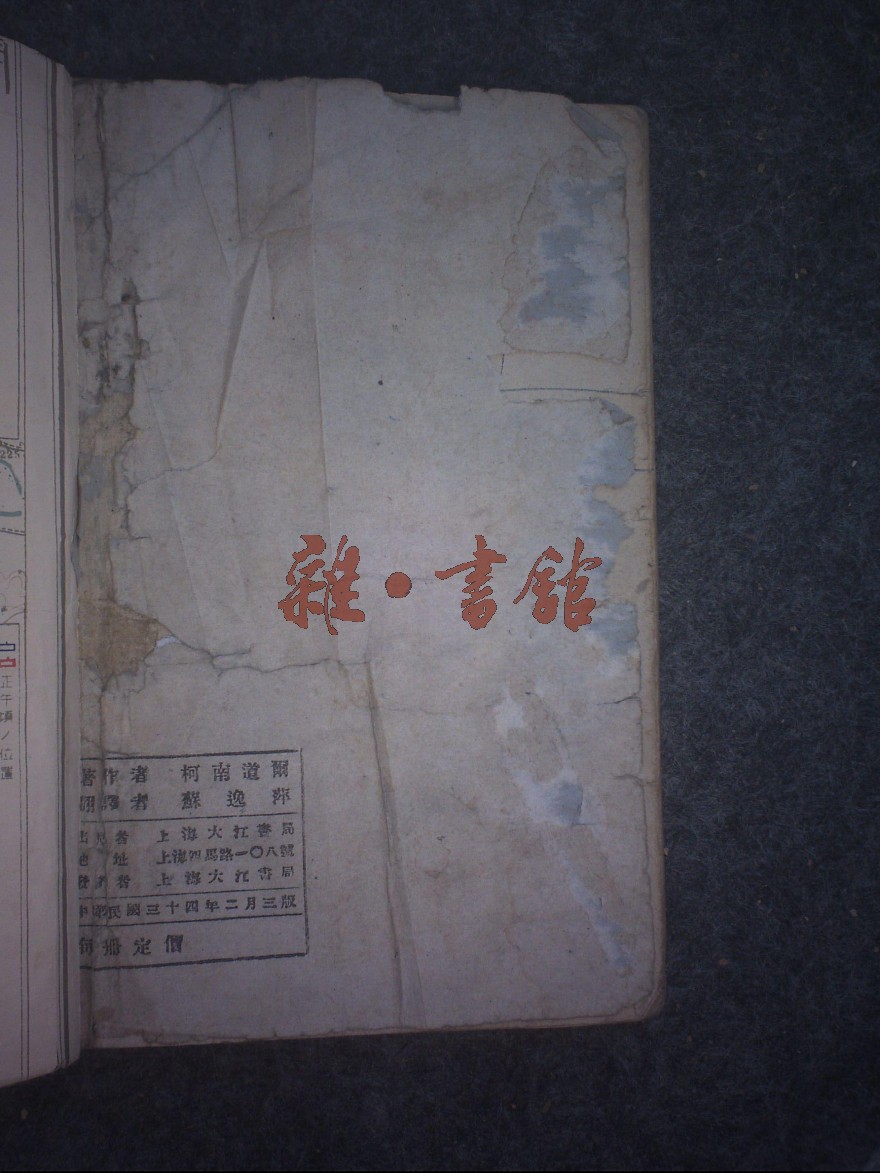 雜·書舘
著作者 柯南道爾
翻譯者 蘇逸萍
出版者 上海大江書局
地址 上海四馬路一〇八號
發行者 上海大江書局
中華民國三十四年二月三版
每冊定價
225
正午頃ノ位置